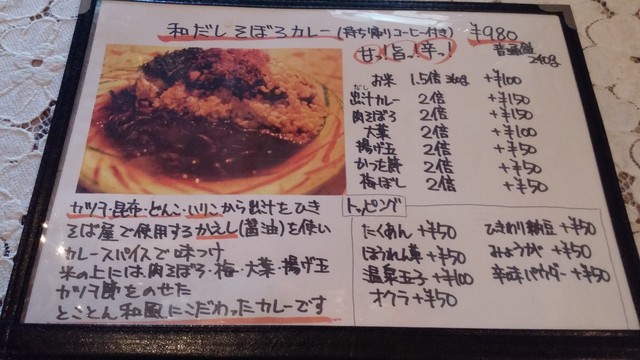 和だしそぼろカレー(持ち帰りコーヒー付き) ¥980
甘っ!旨っ!辛っ! 普通盛
240g
お米 1.5倍 360g +¥100
だし
出汁カレー 2倍 +¥150
肉そぼろ 2倍 +¥150
大葉 2倍 +¥100
揚げ玉 2倍 +¥50
かつお節 2倍 +¥50
梅ぼし 2倍 +¥50
カツヲ・昆布・どんこ・いりこから出汁をひき
そば屋で使用するかえし(醤油)を使い
カレースパイスで味つけ
米の上には肉そぼろ・梅・大葉・揚げ玉
カツヲ節をのせた
とことん和風にこだわったカレーです
トッピング
たくあん +¥50
ほうれん草 +¥50
温泉玉子 +¥100
オクラ +¥50
ひきわり納豆 +¥50
みょうが +¥50
辛味パウダー +¥50